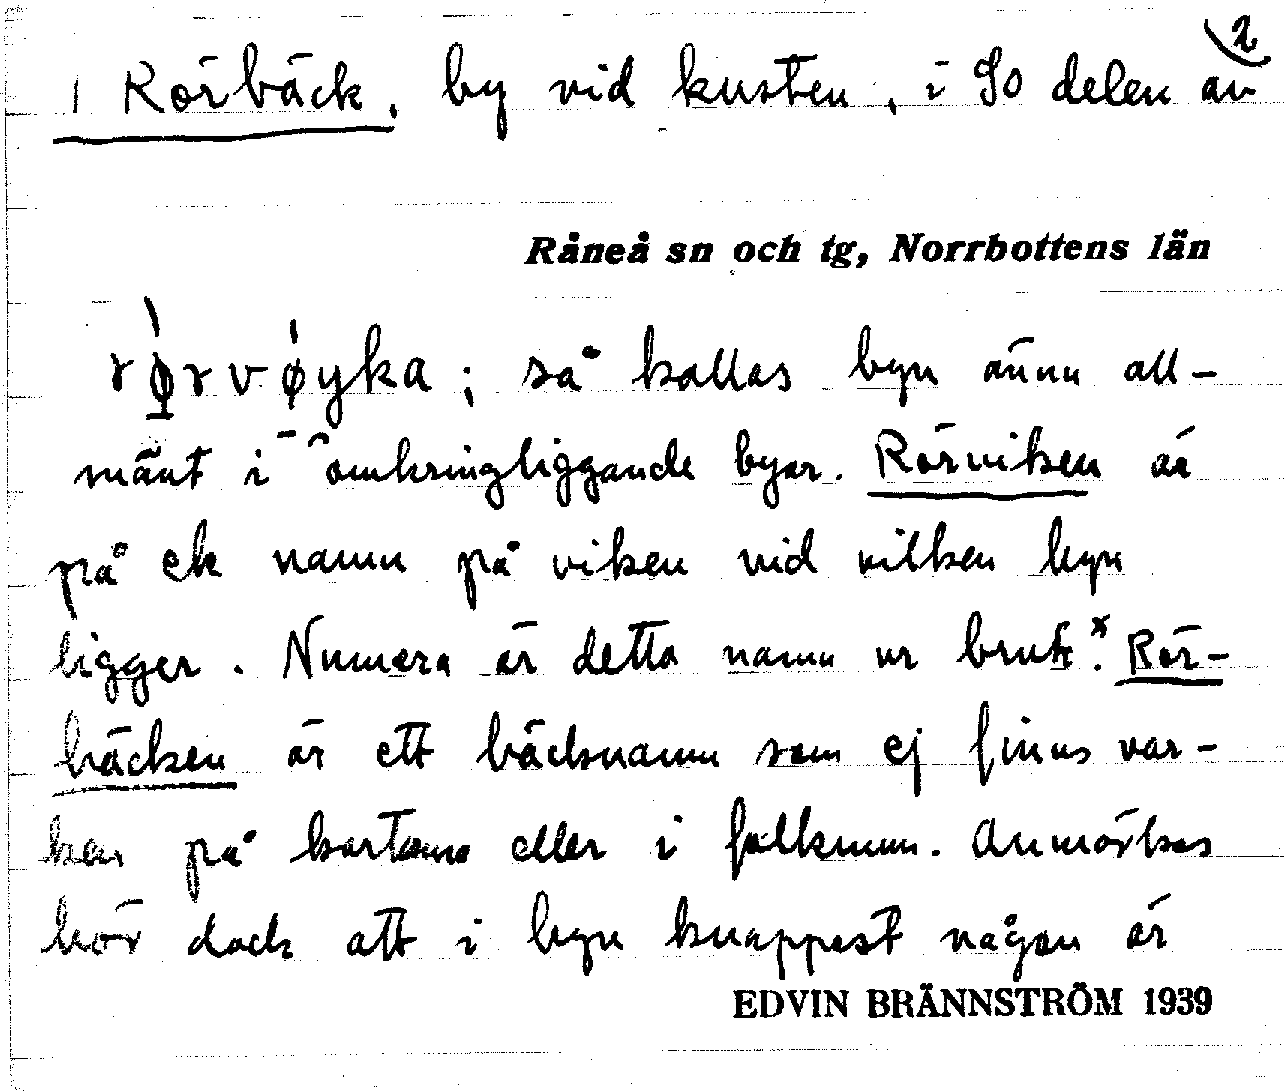 2
1 Rörbäck, by vid kusten, i So delen av
Råneå sn och tg, Norrbottens län
rø̀rvøyka; så kallas byn ännu all-
mänt i omkringliggande byar. Rörviken är
på ek namn på viken vid vilken byn
ligger. Numera är detta namn ur bruk.x Rör-
bäcken är ett bäcknamn som ej finns var-
ken på kartorna eller i folkmun. Anmärkas
bör dock att i byn knappast någon är
EDVIN BRÄNNSTRÖM 1939